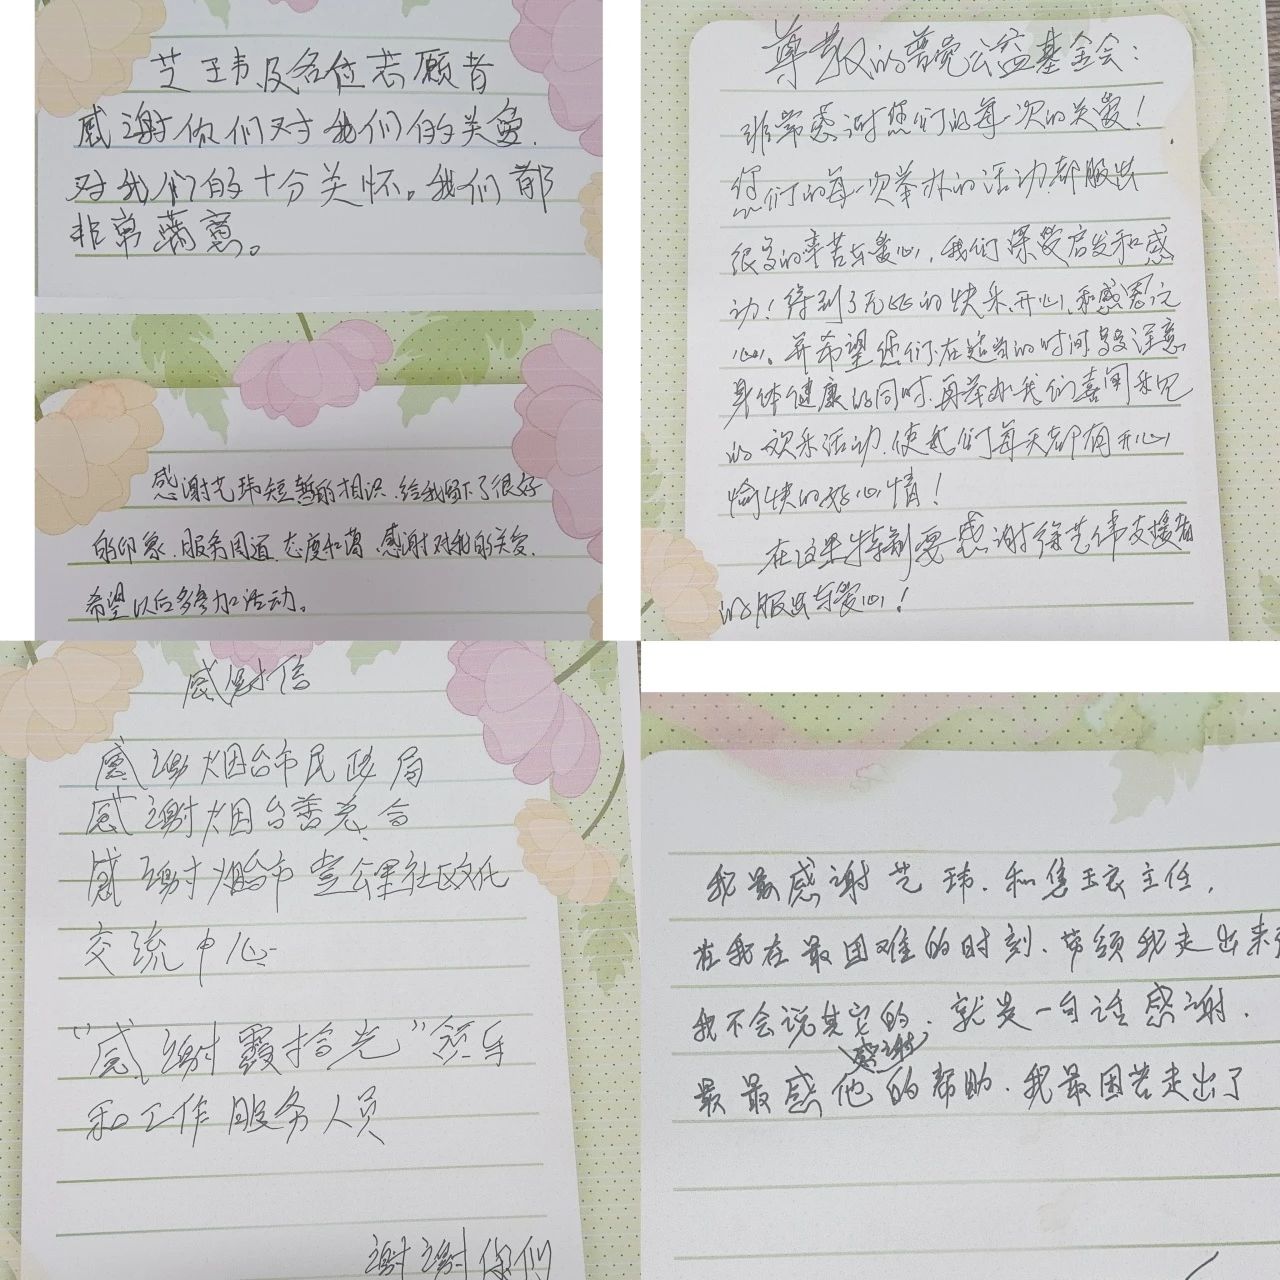 芝玮及各位志愿者
感谢你们对我们的关爱.
对我们的十分关怀。我们都
非常满意。
感谢艺玮短暂的相识.给我留下了很好
的印象.服务周道.态度和蔼.感谢对我的关爱.
希望以后多参加活动。
尊敬的普觉公益基金会：
非常感谢您们的每一次的关爱！
您们的每一次举办的活动都服出
很多的辛苦与爱心，我们深受启发和感
动！得到了无比的快乐、开心、和感恩之
心。并希望您们、在适当的时间
身体健康的同时、再举办我们喜闻乐见
的欢乐活动、使我们每天都有开心
愉快的好心情！
在这里特别要感谢徐芝伟支援者
的服出与爱心！
感谢信
感谢烟台市民政局
感谢烟台善总会
感谢烟台市壹公里社区文化
交流中心
“感谢霞拾光”领导
和工作服务人员
谢谢你们
我最感谢艺玮.和隽玉衣主任.
在我在最困难的时刻.带领我走出来
我不会说其它的.就是一句话感谢.
感谢
最最感他的帮助.我最困苦走出了